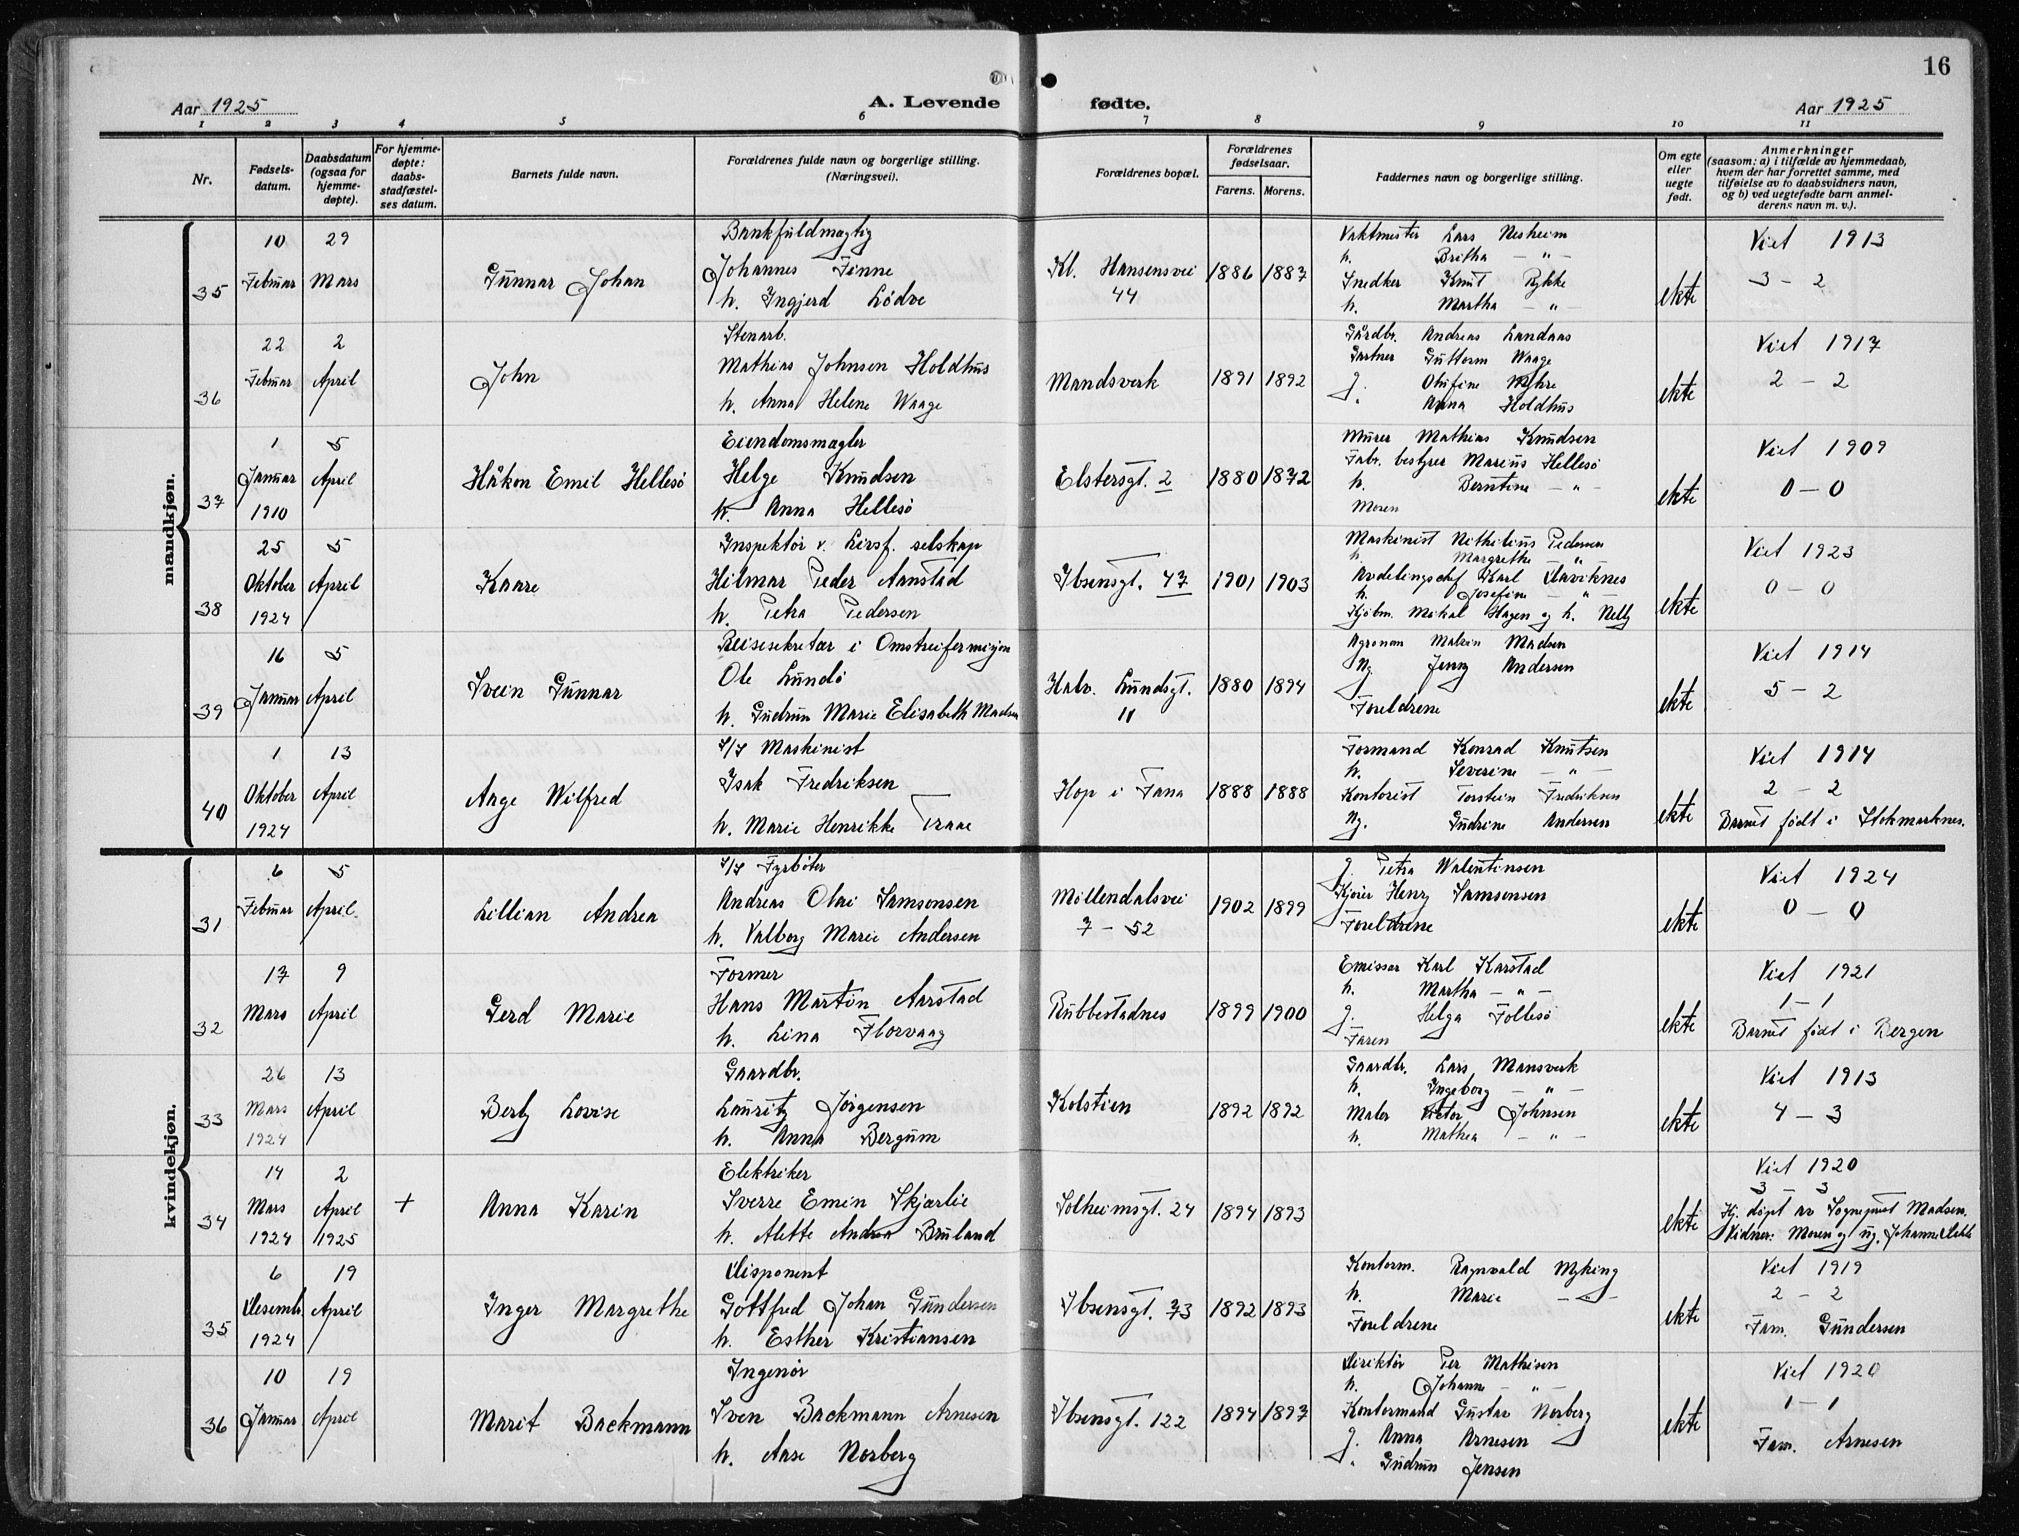 16
Aar 1925
A. Levende
fødte.
Aar 1925
1 2 3 4 5 6 7 8 9 10 11
Nr.
Fødsels-
datum.
Daabsdatum
(ogsaa for
hjemme-
døpte).
For hjemme-
døpte:
daabs-
stadfæstel-
ses datum.
Barnets fulde navn.
Forældrenes fulde navn og borgerlige stilling.
(Næringsvei).
Forældrenes bopæl.
Forældrenes
fødselsaar.
Farens. Morens.
Faddernes navn og borgerlige stilling.
Om egte
eller
uegte
født.
Anmerkninger
(saasom: a) i tilfælde av hjemmedaab,
hvem der har forrettet samme, med
tilføielse av to daabsvidners navn,
og b) ved uegtefødte barn anmel-
derens navn m. v.).
mandkjøn.
35
10
Februar
29
Mars
Gunnar Johan
Bankfuldmægtig
Johannes Finne
h. Ingjerd Lødve
Kl. Hansensvei
44
1886 1887
Vaktmester Lars Nesheim
h. Britha — " —
Snedker Knut Rykke
h. Martha — " —
ekte
Viet 1913
3 - 2
36
22
Februar
2
April
John
Stenarb.
Mathias Johnsen Holdhus
h. Anna Helene Waage
Mandsverk
1891 1892
Gårdbr. Andreas Landaas
Gartner Guttorm Waage
g. Olufine Myhre
" Anna Holdhus
ekte
Viet 1917
2 - 2
37
1
Januar
1910
5
April
Håkon Emil Hellesö
Eiendomsmagler
Helge Knudsen
h. Anna Hellesö
Elstersgt. 2
1880 1872
Murer Mathias Knudsen
Fabr. bestyrer Marius Hellesö
h. Berntine — " —
Moren
ekte
Viet 1909
0 - 0
38
25
Oktober
1924
5
April
Kaare
Inspektör v. Livsf. selskap
Hilmar Peder Aanstad
h. Petra Pedersen
Ibsensgt. 47
1901 1903
Maskinist Pedersen
h. Margrethe — " —
Avdelingschef Karl
h. Josefine — " —
Kjöbm. Mikal Hagen og h. Nelly
ekte
Viet 1923
0 - 0
39
16
Januar
5
April
Svein Gunnar
Reisesekretær i Omstreifermisjon
Ole Lundö
h. Gudrun Marie Elisabeth Madsen
Halv. Lundsgt.
11
1880 1894
Agronom Malvin Madsen
Ug. Jenny Andersen
Foreldrene
ekte
Viet 1914
5 - 2
40
1
Oktober
1924
13
April
Aage Wilfred
S/S Maskinist
Isak Fredriksen
h. Marie Henrikke Traae
Hop i Fana
1888 1888
Formand Konrad Knutsen
h. Severine — " —
Kontorist Torstein Fredriksen
Ug. Gudrine Andersen
ekte
Viet 1914
2 - 2
Barnet födt i Stokmarknes.
kvindekjøn.
31
6
Februar
5
April.
Lillian Andrea
S/S Fyrböter
Andreas Olai Samsonsen
h. Valborg Marie Andersen
Möllendalsvei
7 - 52
1902 1899
g. Petra Walentinsen
Henry Samsonsen
Foreldrene
ekte
Viet 1924
0 - 0
32
17
Mars
9
April
Gerd Marie
Former
Hans Martin Aarstad
h. Lina Florvaag
Rubbestadnes
1899 1900
Emissær Karl Karstad
h. Martha — " —
g. Helga Follesö
Faren
ekte
Viet 1921
1 - 1
Barnet födt i Bergen
33
26
Mars
1924
13
April
Berly Lovise
Gaardbr.
Lauritz Jörgensen
h. Anna Bergum
Kolstien
1892 1892
Gaardbr. Lars Mansverk
h. Ingeborg — " —
Maler Victor Johnsen
h. Mathea — " —
ekte
Viet 1913
4 - 3
34
14
Mars
1924
2
April
1925
+
Anna Karin
Elektriker
Sverre Emin Skjærlie
h. Alette Andrea Bruland
Solheimsgt. 24
1894 1893
ekte
Viet 1920
3 - 3
Hj. döpt av Sogneprest Madsen.
Vidner: Moren og ug. Johanne
35
6
Desemb.
1924
19
April
Inger Margrethe
Disponent
Gottfred Johan Gundersen
h. Esther Kristiansen
Ibsensgt. 73
1892 1893
Kontorm. Ragnvald Myking
h. Marie — " —
Foreldrene
ekte
Viet 1919
2 - 2
Fam. Gundersen
36
10
Januar
19
April
Marit Backmann
Ingeniör
Sven Backmann Arnesen
h. Aase Norberg
Ibsensgt. 122
1894 1897
Direktör Per Mathisen
h. Johanne — " —
Kontormand Gustav Norberg
g. Anna Arnesen
" Gudrun Jensen
ekte
Viet 1920
1 - 1
Fam. Arnesen